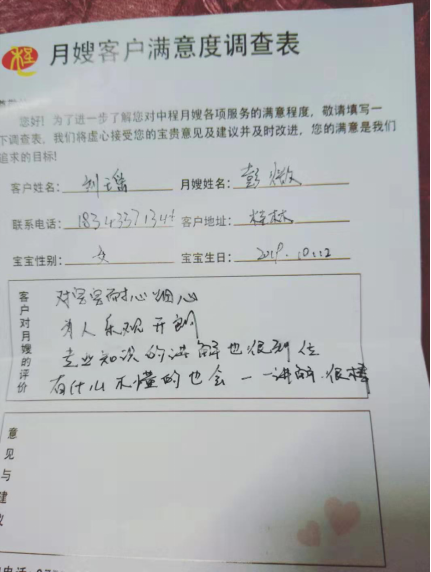 程
月嫂客户满意度调查表
您好! 为了进一步了解您对中程月嫂各项服务的满意程度, 敬请填写一
下调查表, 我们将虚心接受您的宝贵意见及建议并及时改进, 您的满意是我们
追求的目标!
客户姓名: 刘 月嫂姓名: 彭
联系电话: 客户地址: 桂林
宝宝性别: 女 宝宝生日: 2019.10.12
客户对月嫂的评价
对宝宝耐心细心
为人乐观开朗
专业知识的讲解也很到位
有什么不懂的也会一一讲解.很棒
意见与建议
电话: